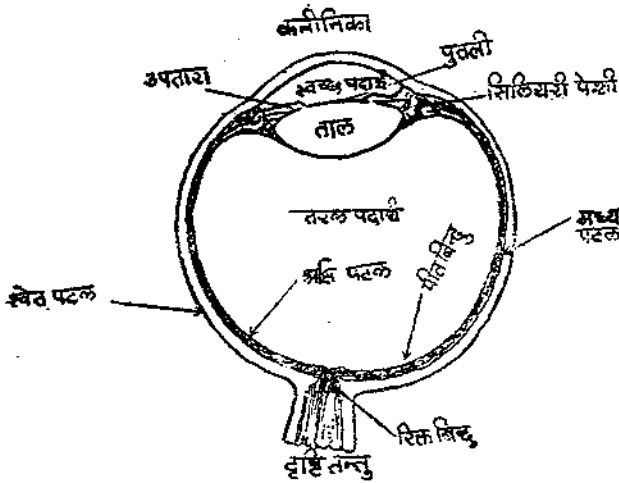 कनीनिका
पुतली
उपतारा
स्वच्छ पदार्थ
सिलियरी पेशी
ताल
तरल पदार्थ
मध्य
पटल
पीत बिन्दु
अक्षि पटल
श्वेत पटल
रिक्त बिन्दु
दृष्टि तन्तु